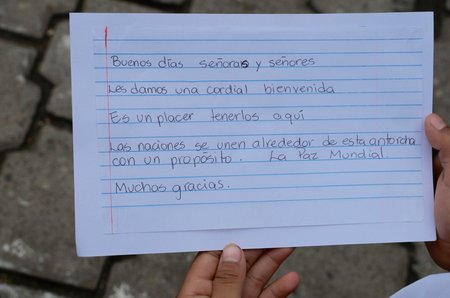 Buenos días señoras y señores
Les damos una cordial bienvenida
Es un placer tenerlos aquí
Las naciones se unen alrededor de esta antorcha
con un propósito. La Paz Mundial.
Muchas gracias.